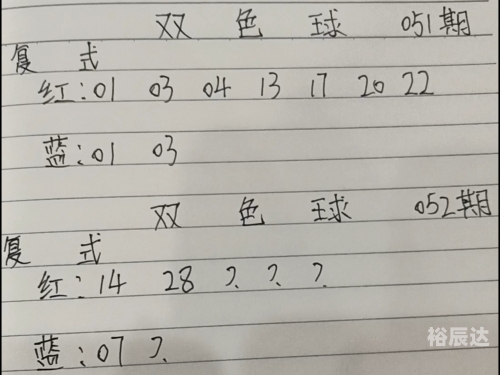 双 色 球 051期
复 式
红:01 03 04 13 17 20 22
蓝:01 03
双 色 球 052期
复 式
红:14 28 ? ? ?
蓝:07 ?
裕辰达